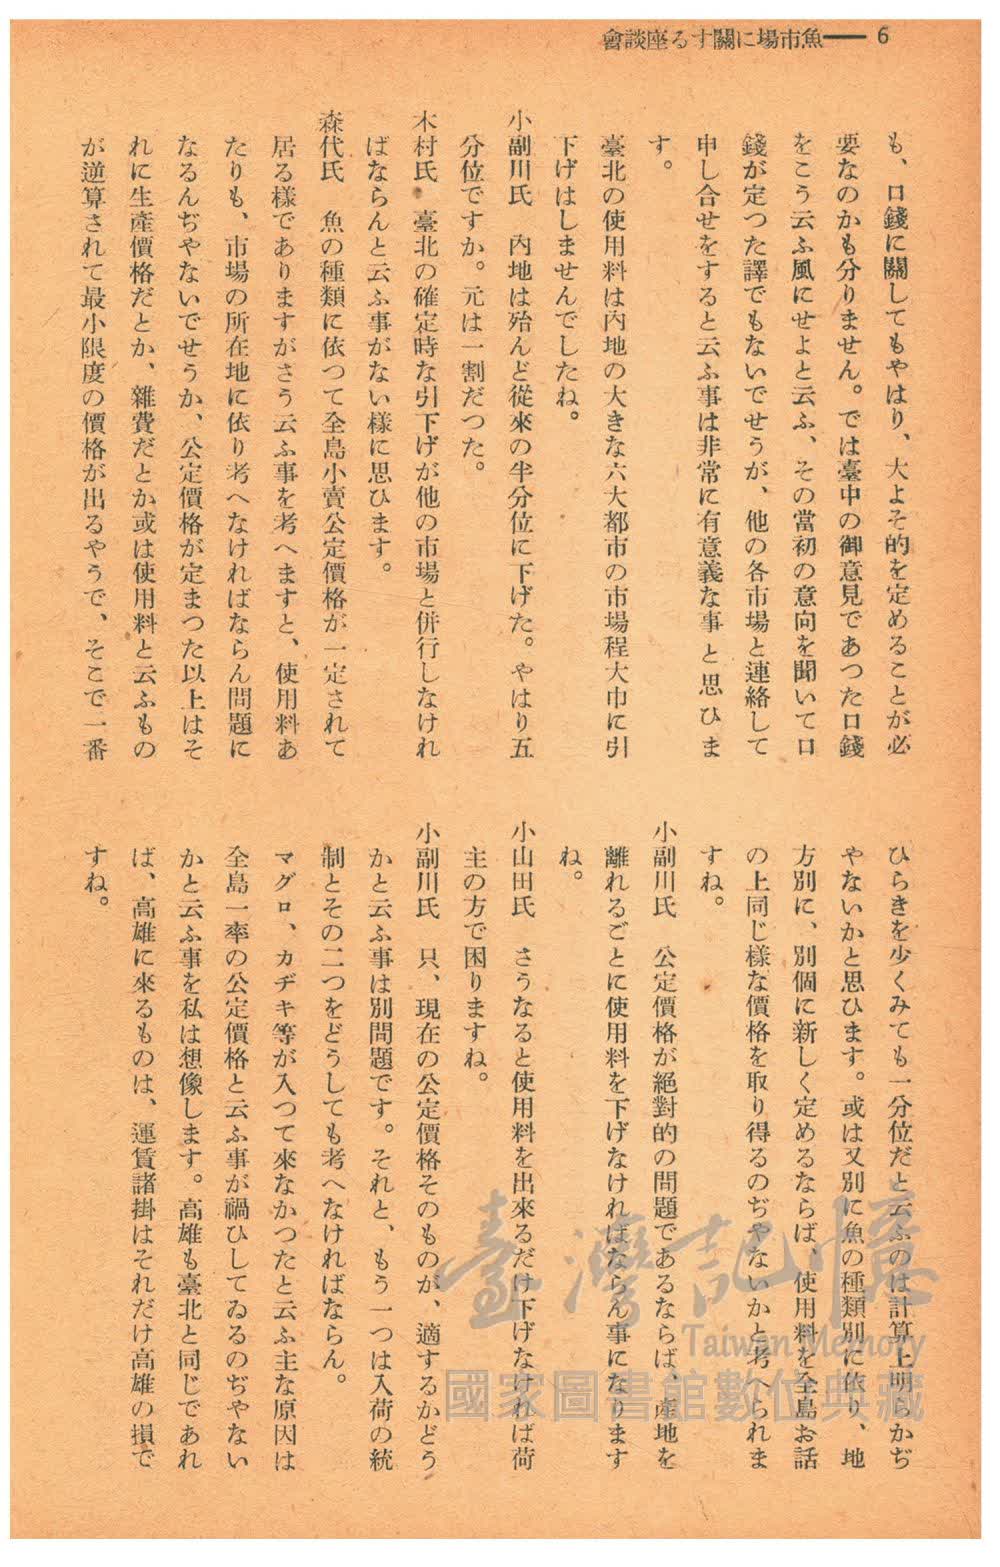 魚市場に關する座談會 ━━ 6
も、口錢に關してもやはり、大よそ的を定めることが必
要なのかも分りません。では臺中の御意見であつた口錢
をこう云ふ風にせよと云ふ、その當初の意向を聞いて口
錢が定つた譯でもないでせうが、他の各市場と連絡して
申し合せをすると云ふ事は非常に有意義な事と思ひま
す。
臺北の使用料は內地の大きな六大都市の市場程大巾に引
下げはしませんでしたね。
小副川氏　內地は殆んど從來の半分位に下げた。やはり五
分位ですか。元は一割だつた。
木村氏　臺北の確定時な引下げが他の市場と併行しなけれ
ばならんと云ふ事がない樣に思ひます。
森代氏　魚の種類に依つて全島小賣公定價格が一定されて
居る樣でありますがさう云ふ事を考へますと、使用料あ
たりも、市場の所在地に依り考へなければならん問題に
なるんぢやないでせうか、公定價格が定まつた以上はそ
れに生產價格だとか、雜費だとか或は使用料と云ふもの
が逆算されて最小限度の價格が出るやうで、そこで一番
ひらきを少くみても一分位だと云ふのは計算上明らかぢ
やないかと思ひます。或は又別に魚の種類別に依り、地
方別に、別個に新しく定めるならば、使用料を全島お話
の上同じ樣な價格を取り得るのぢやないかと考へられま
すね。
小副川氏　公定價格が絕對的の問題であるならば、產地を
離れるごとに使用料を下げなければならん事になります
ね。
小山田氏　さうなると使用料を出來るだけ下げなければ荷
主の方で困りますね。
小副川氏　只、現在の公定價格そのものが、適するかどう
かと云ふ事は別問題です。それと、もう一つは入荷の統
制とその二つをどうしても考へなければならん。
マグロ、カヂキ等が入つて來なかつたと云ふ主な原因は
全島一率の公定價格と云ふ事が禍ひしてゐるのぢやない
かと云ふ事を私は想像します。高雄も臺北と同じであれ
ば、高雄に來るものは、運賃諸掛はそれだけ高雄の損で
すね。
臺灣記憶
Taiwan Memory
國家圖書館數位典藏